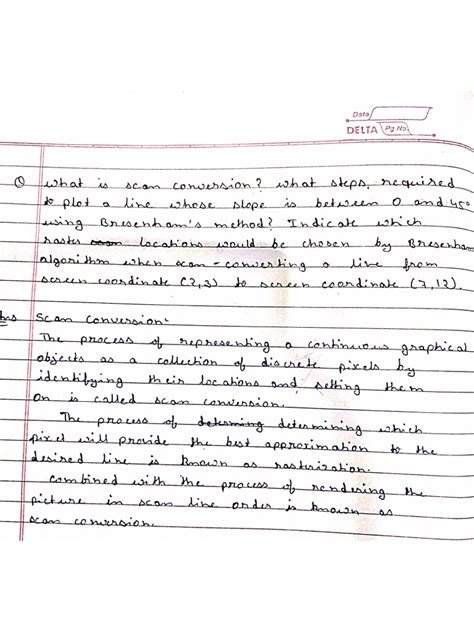 Date
DELTA Pg No.
Q what is scan conversion? what steps, required
to plot a line whose slope is between 0 and 45°
using Bresenham's method? Indicate which
raster locations would be chosen by Bresenham
algorithm when scan-converting a line from
screen coordinate (2,3) to screen coordinate (7,12).
Ans Scan Conversion:
The process of representing a continuous graphical
objects as a collection of discrete pixels by
identifying their locations and setting them
on is called scan conversion.
The process of determining which
pixel will provide the best approximation to the
desired line is known as rasterization.
Combined with the process of rendering the
picture in scan line order is known as
scan conversion.